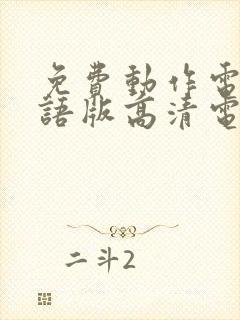 免費動作電
語版高清電
二斗2